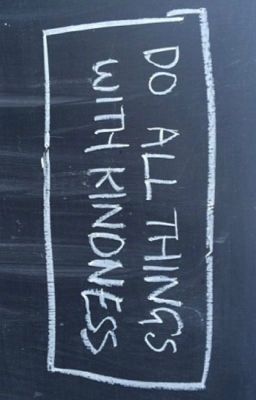 DO ALL THINGS
WITH KINDNESS